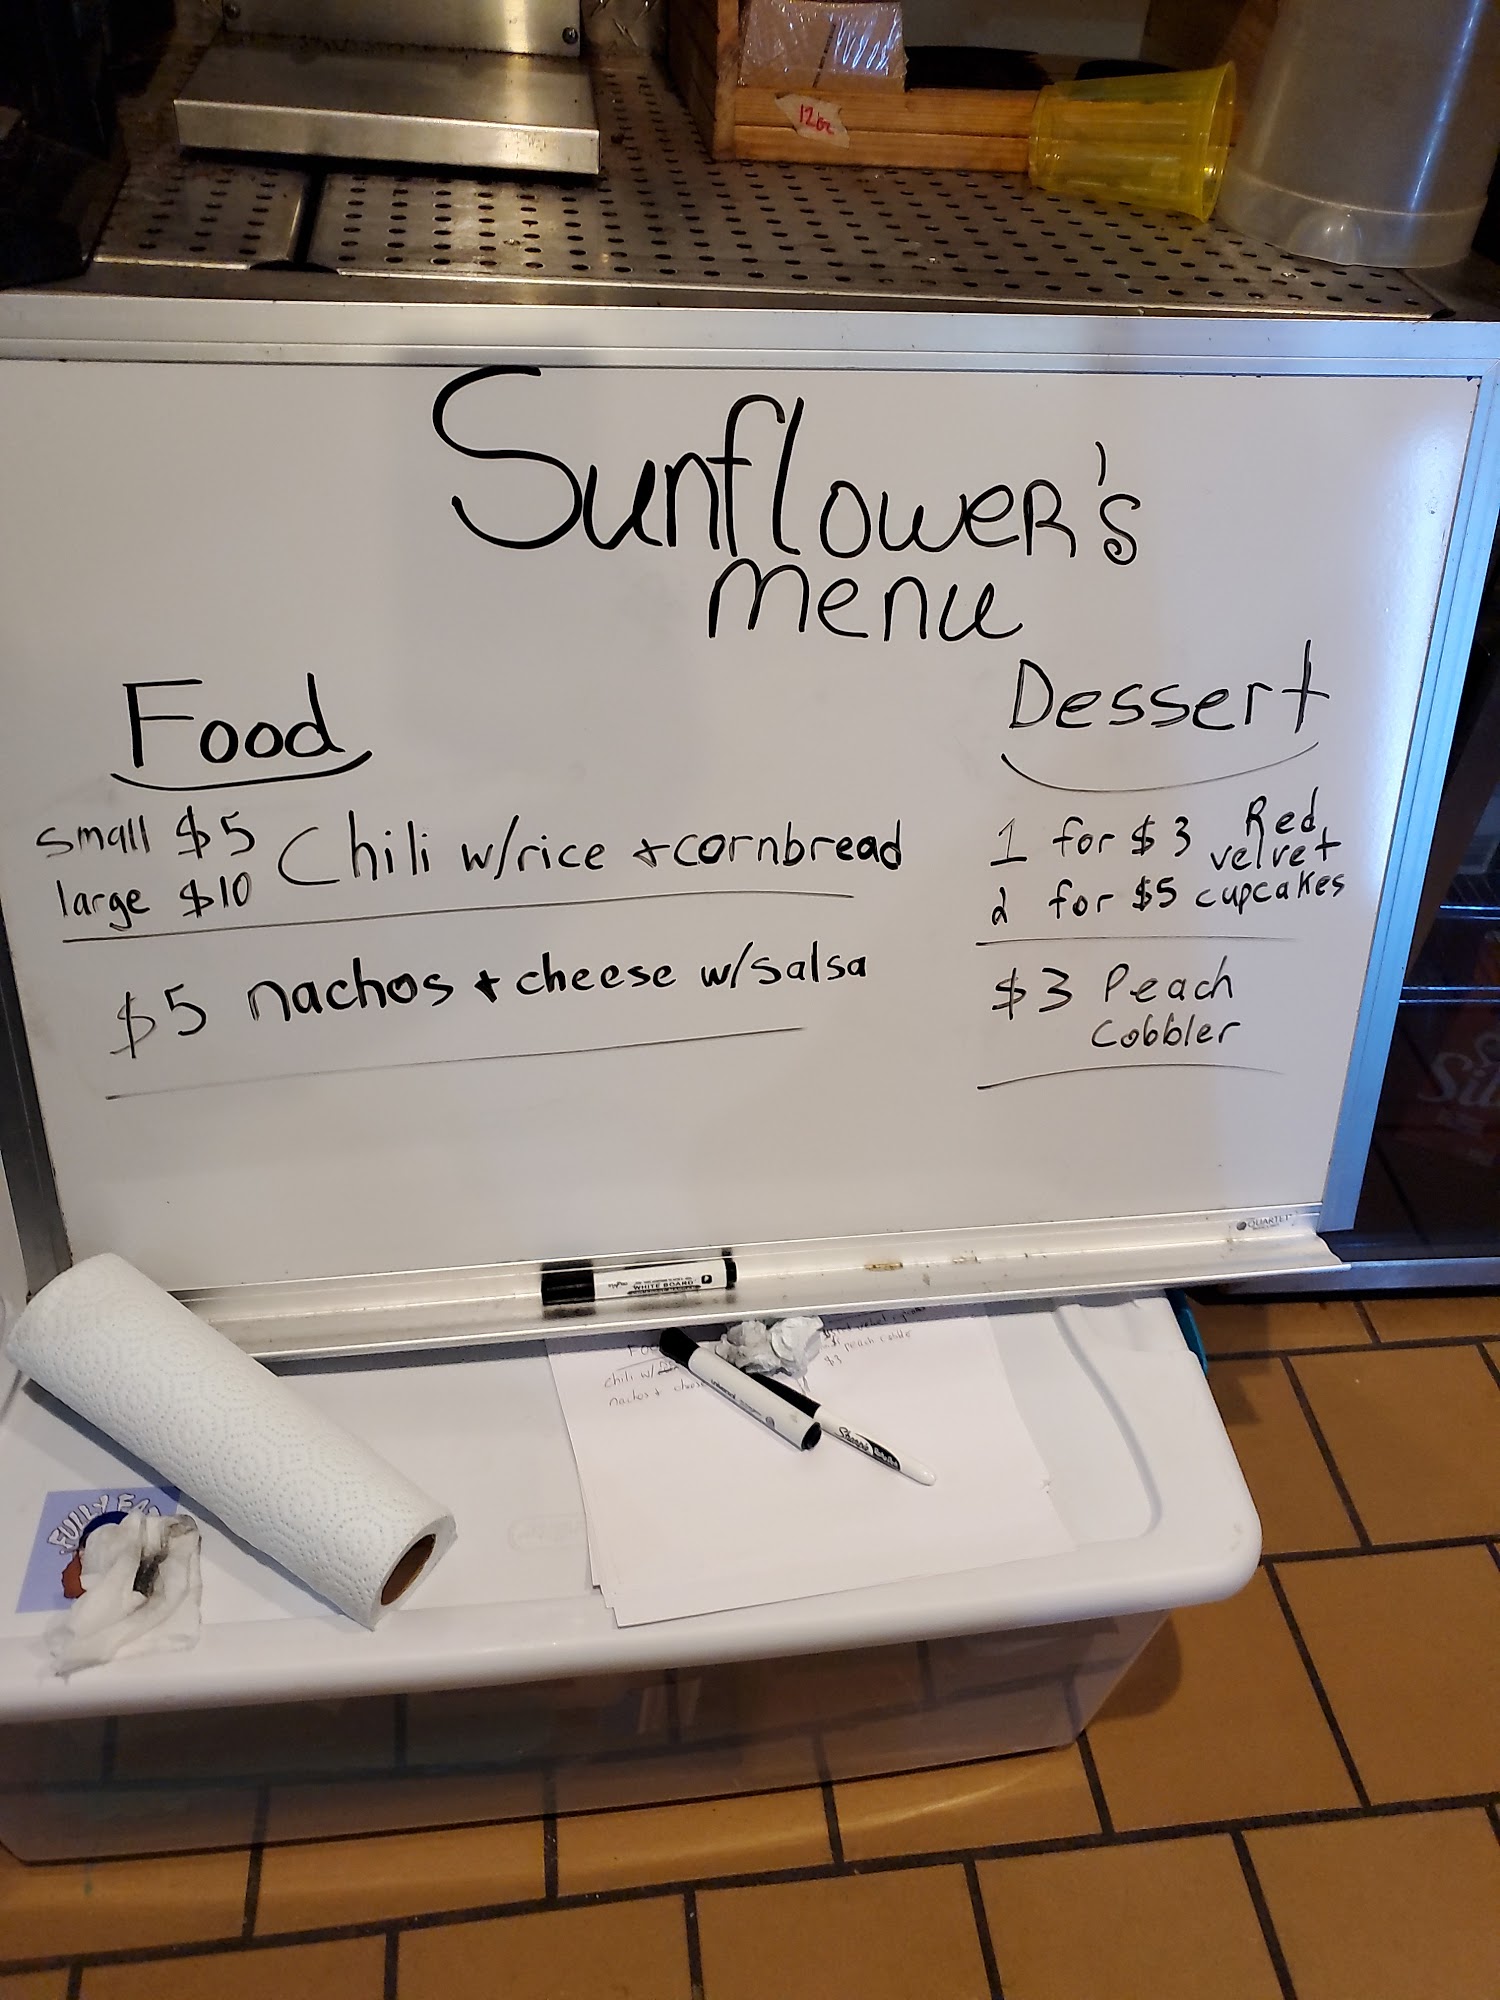 12oz
Sunflower's
menu
Food
small $5 Chili w/rice + cornbread
large $10
$5 nachos + cheese w/salsa
Dessert
1 for $3 Red
velvet
2 for $5 cupcakes
$3 Peach
Cobbler
QUARTET
WHITE BOARD
chili w/
nachos + cheese
peach cobbler
$3
FULLY